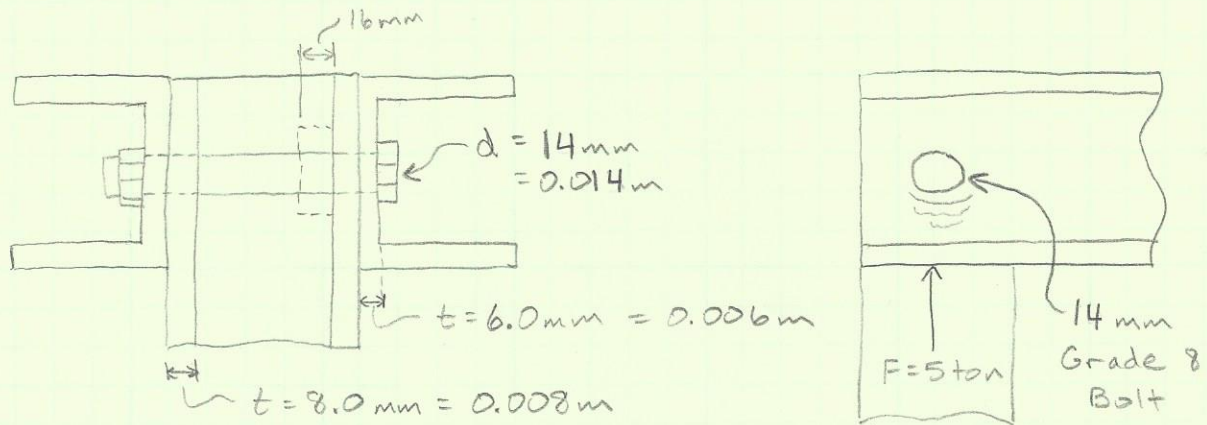 16mm
d = 14mm
= 0.014m
t = 6.0mm = 0.006m
t = 8.0mm = 0.008m
F=5ton
14mm
Grade 8
Bolt